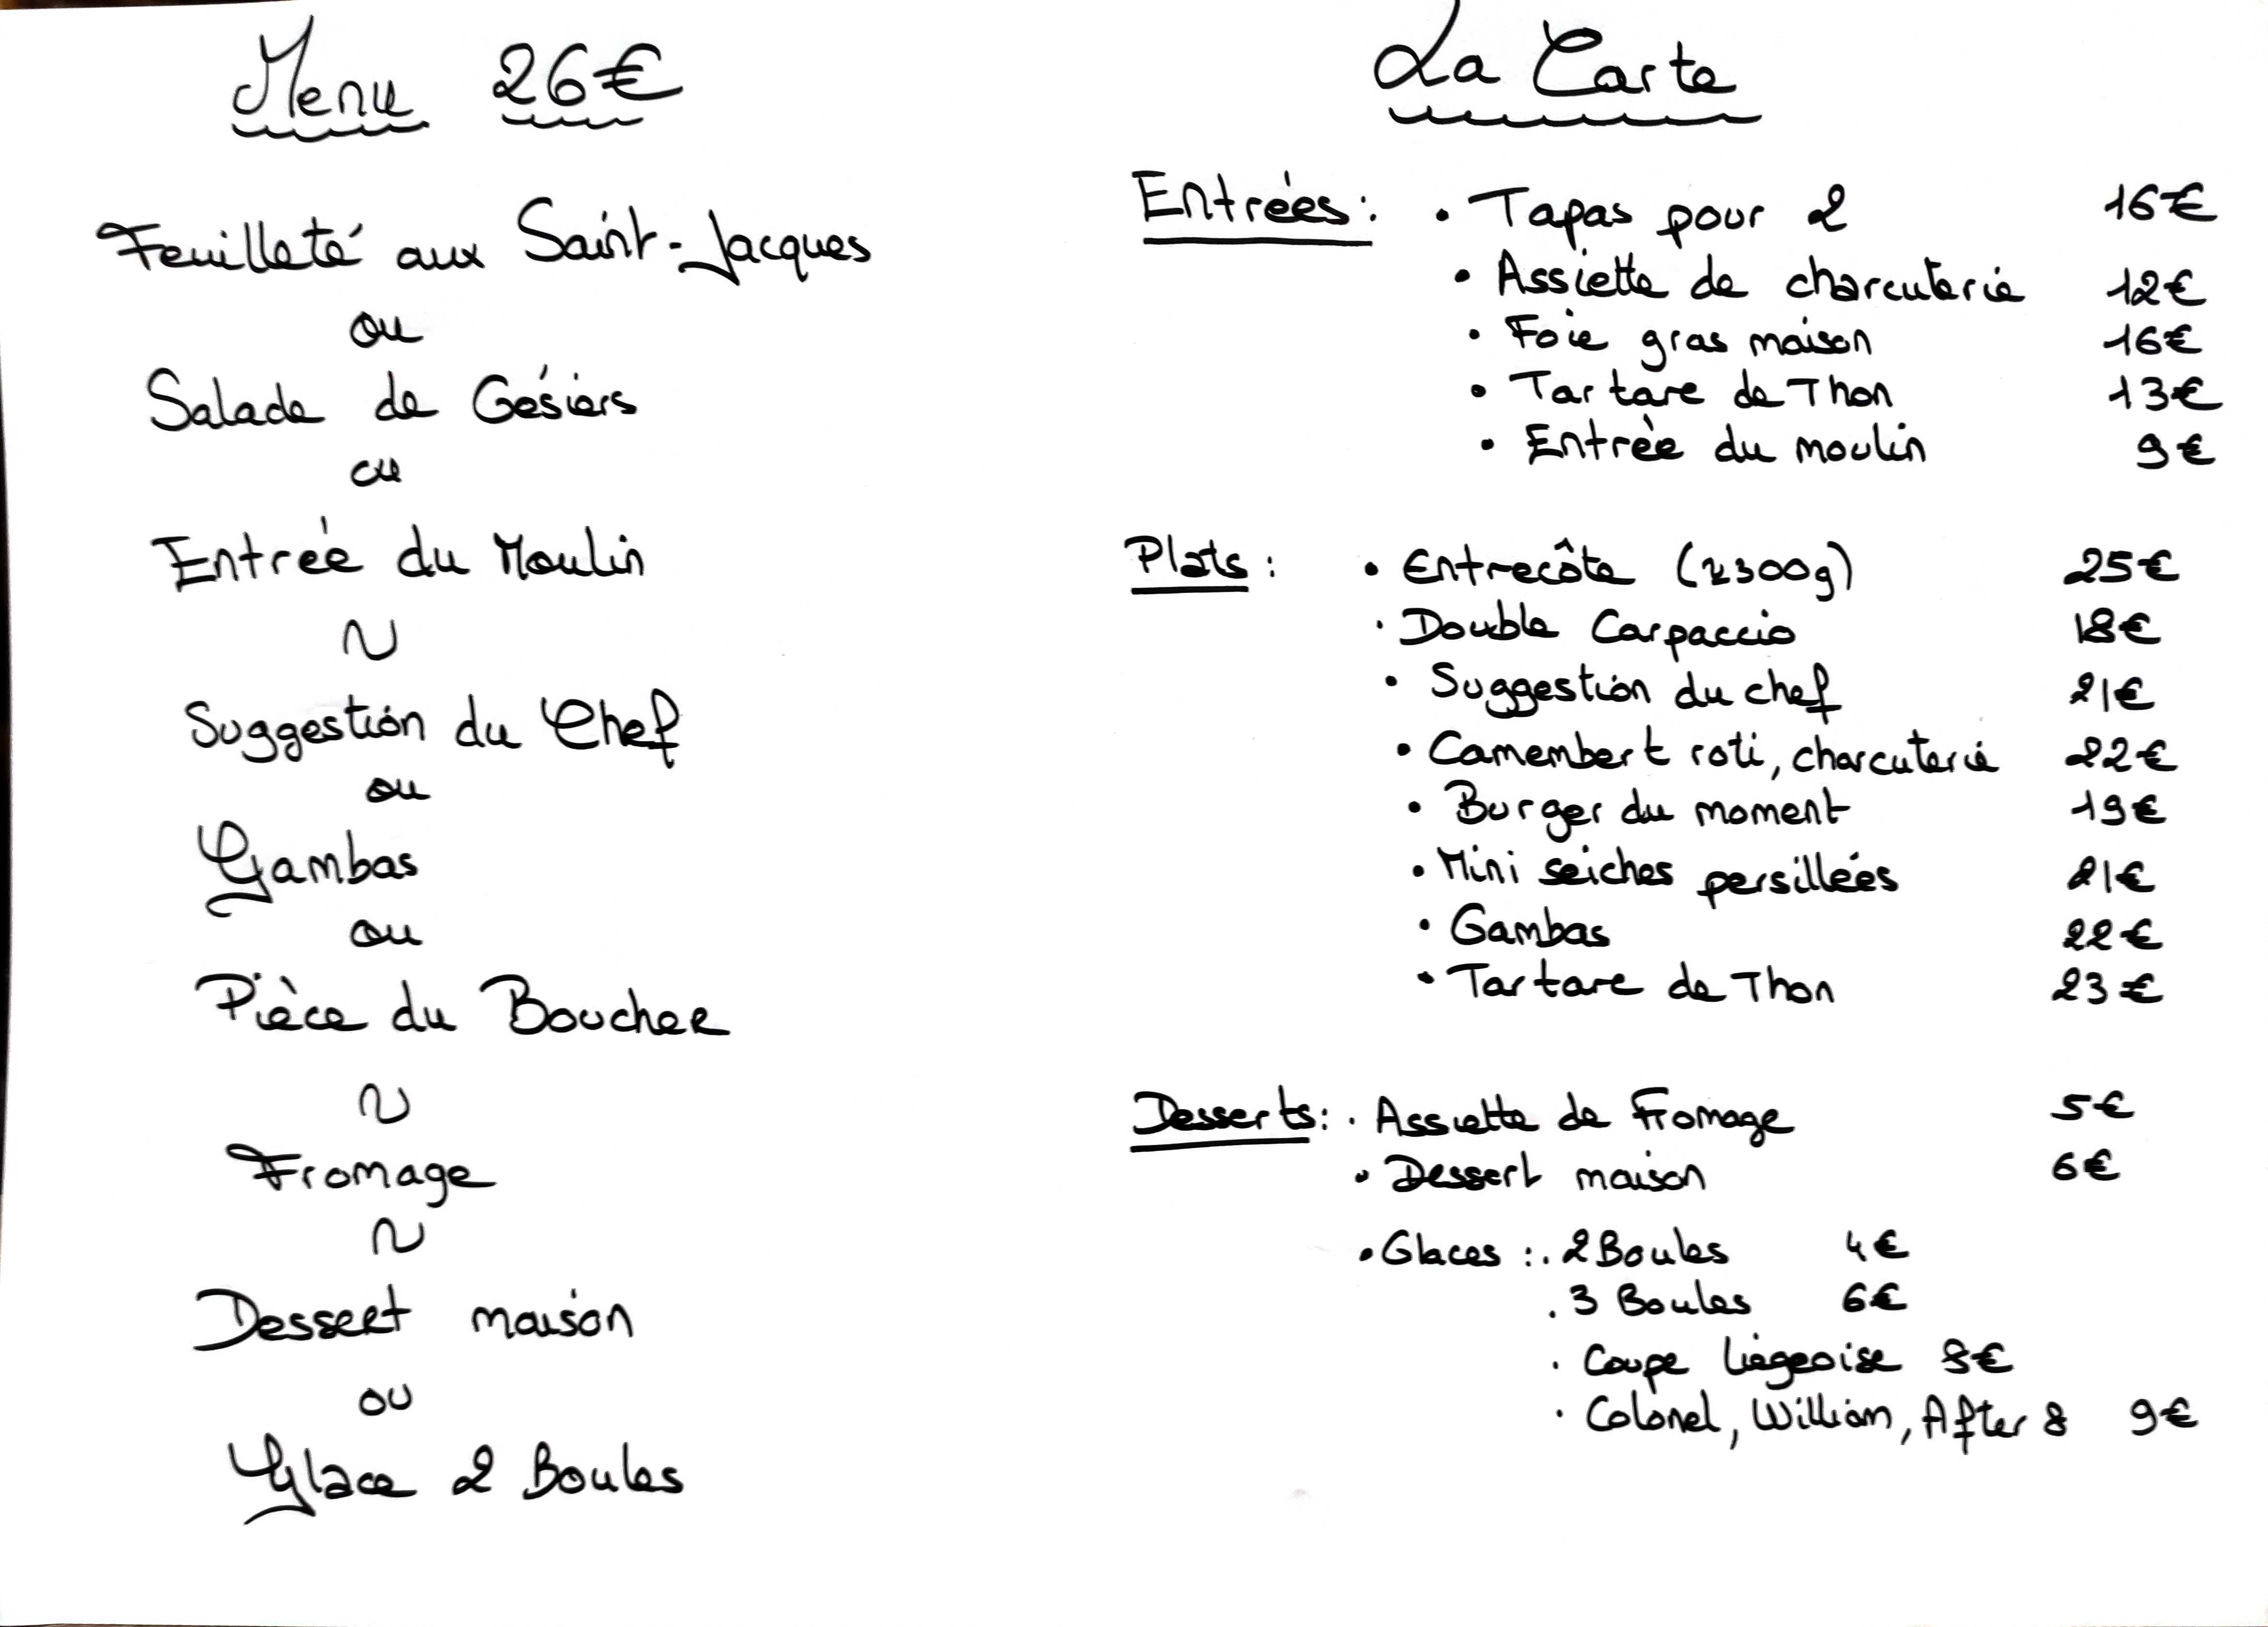 Menu 26€
Feuilleté aux Saint-Jacques
ou
Salade de Gésiers
ou
Entrée du Moulin
~
Suggestion du Chef
ou
Gambas
ou
Pièce du Boucher
~
Fromage
~
Dessert maison
ou
Glace 2 Boules
La Carte
Entrées : • Tapas pour 2 16€
• Assiette de charcuterie 12€
• Foie gras maison 16€
• Tartare de Thon 13€
• Entrée du moulin 9€
Plats : • Entrecôte (≈300g) 25€
• Double Carpaccio 18€
• Suggestion du chef 21€
• Camembert roti, charcuterie 22€
• Burger du moment 19€
• Mini seiches persillées 21€
• Gambas 22€
• Tartare de Thon 23€
Desserts : • Assiette de Fromage 5€
• Dessert maison 6€
• Glaces : . 2 Boules 4€
. 3 Boules 6€
. Coupe liégeoise 8€
. Colonel, William, After 8 9€